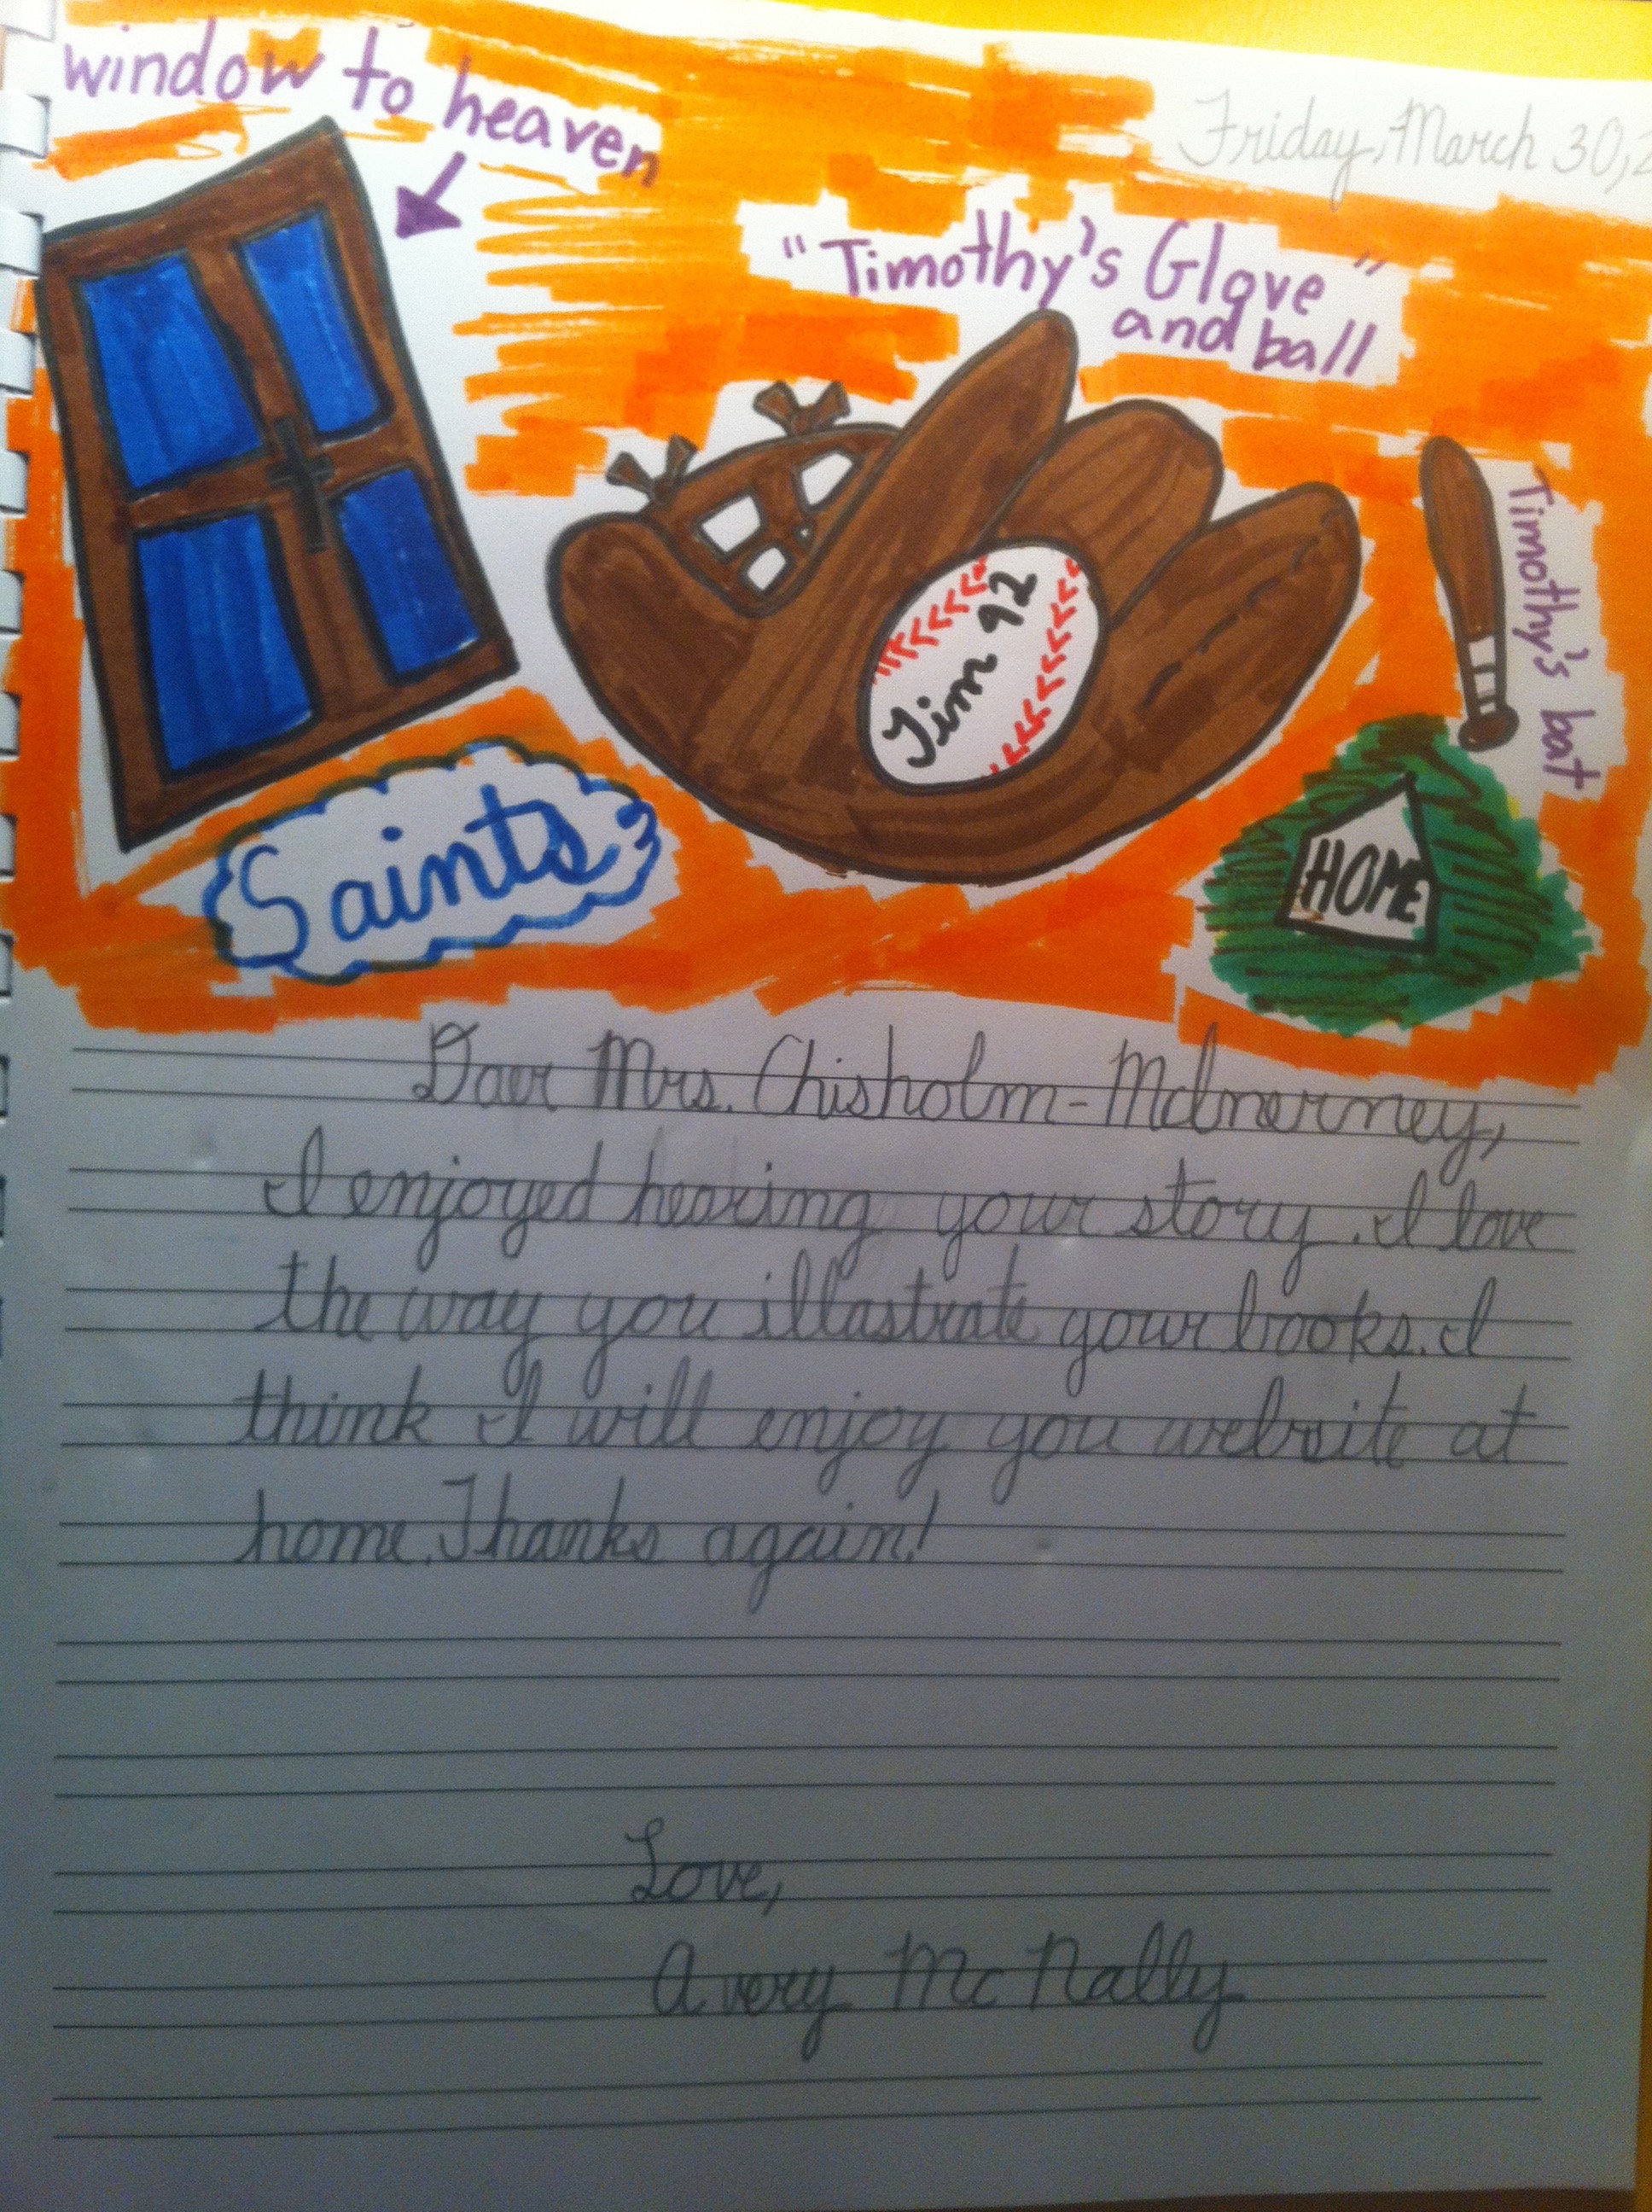 window to heaven
Friday, March 30, 2
"Timothy's Glove"
and ball
Timothy's bat
Tim 92
Saints
HOME
Daer Mrs. Chisholm-McInerney,
I enjoyed hearing your story. I love
the way you illastrate your books. I
think I will enjoy you website at
home. Thanks again!
Love,
Avery McNally